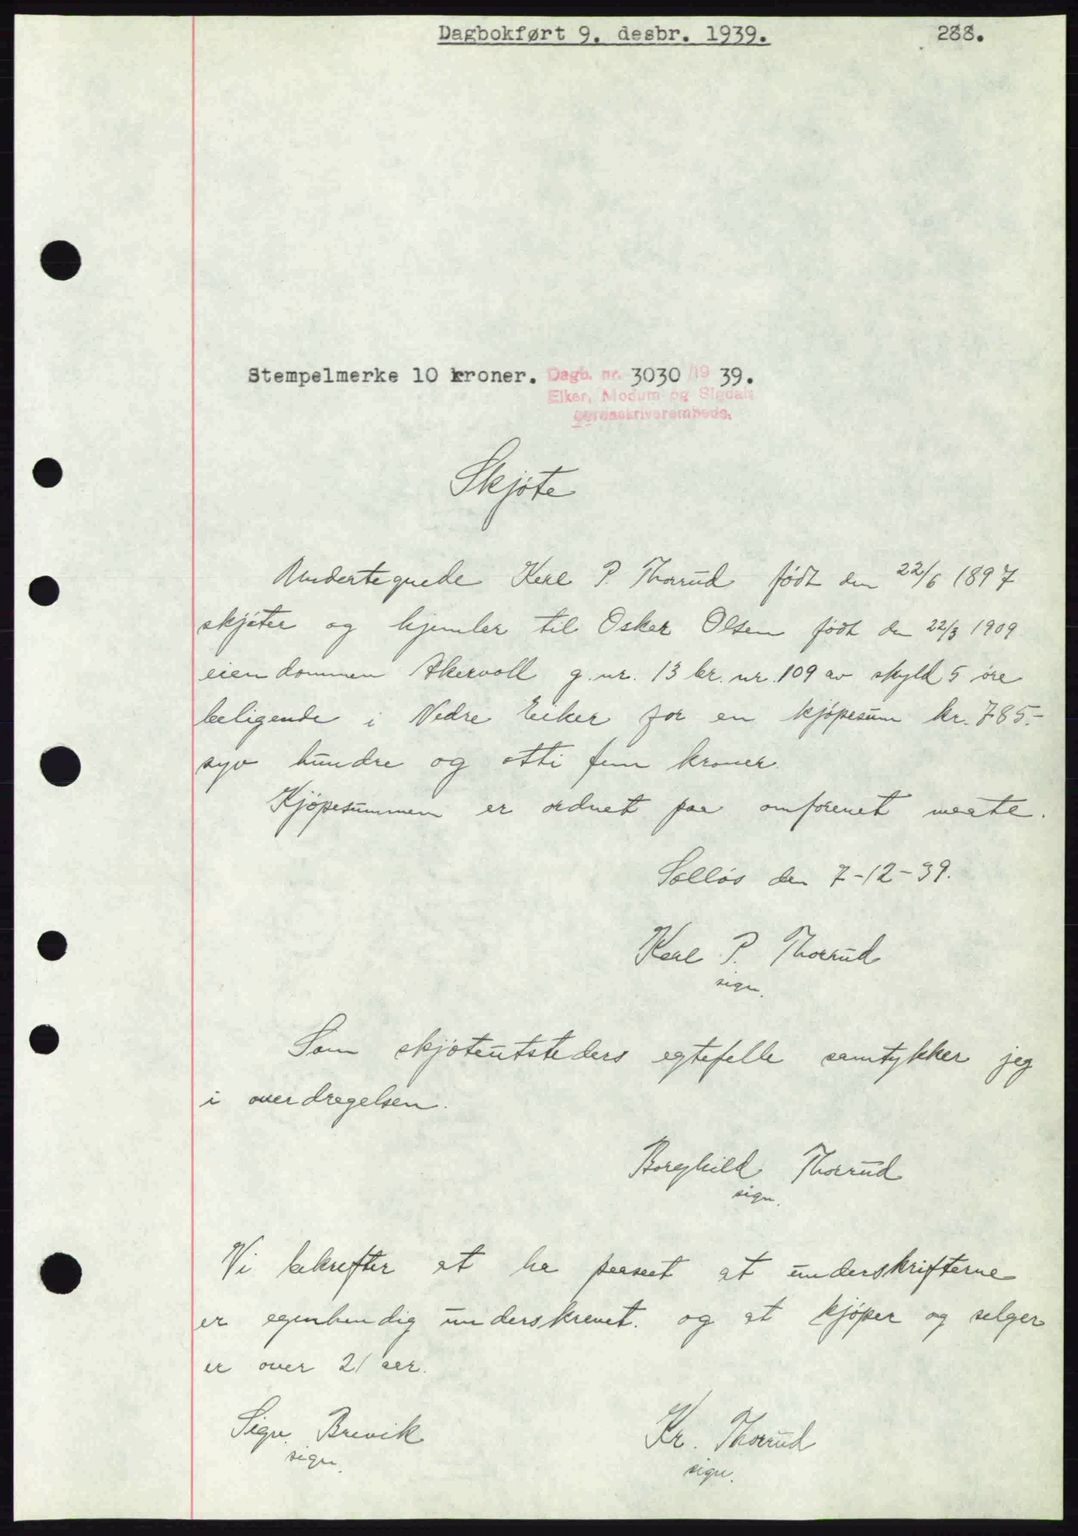 Dagbokført 9. desbr. 1939. 288.
Stempelmerke 10 kroner. Dagb. nr. 3030 /19 39.
Eiker, Modum og Sigdals
sorenskriverembede.
Skjøte
Undertegnede Karl P. Thorrud født den 22/6 1897
skjøter og hjemler til Oskar Olsen født den 22/3 1909
eiendommen Akervoll g. nr. 13 br. nr. 109 av skyld 5 øre
beligende i Nedre Eiker for en kjøpesum kr. 785.-
syv hundre og otti fem kroner.
Kjøpesummen er ordnet paa omforenet maate.
Solløs den 7-12-39.
Karl P. Thorrud
sign.
Som skjøteutsteders egtefelle samtykker jeg
i overdragelsen.
Borghild Thorrud
sign.
Vi bekrefter at ha paaseet at underskrifterne
er egenhendig underskrevet. og at kjøper og selger
er over 21 aar.
Sign. Brevik
sign.
Kr. Thorrud
sign.